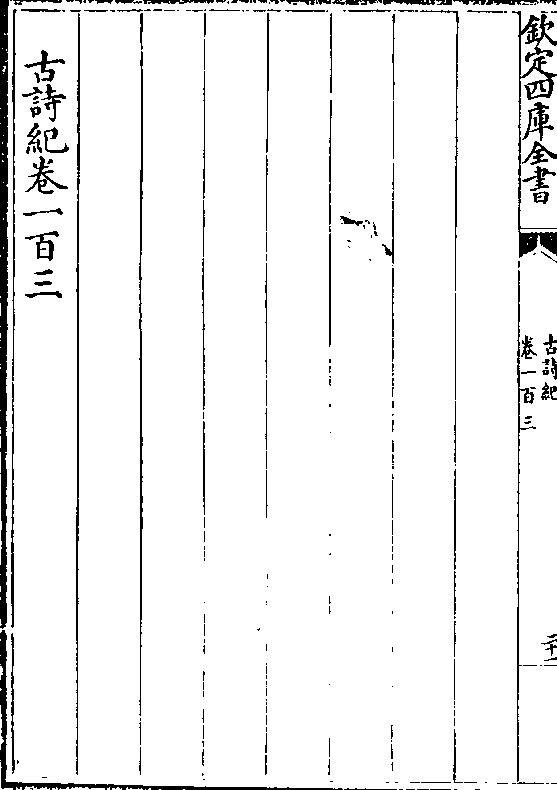 欽定四庫全書
古詩紀
卷一百三
二十一
古詩紀卷一百三